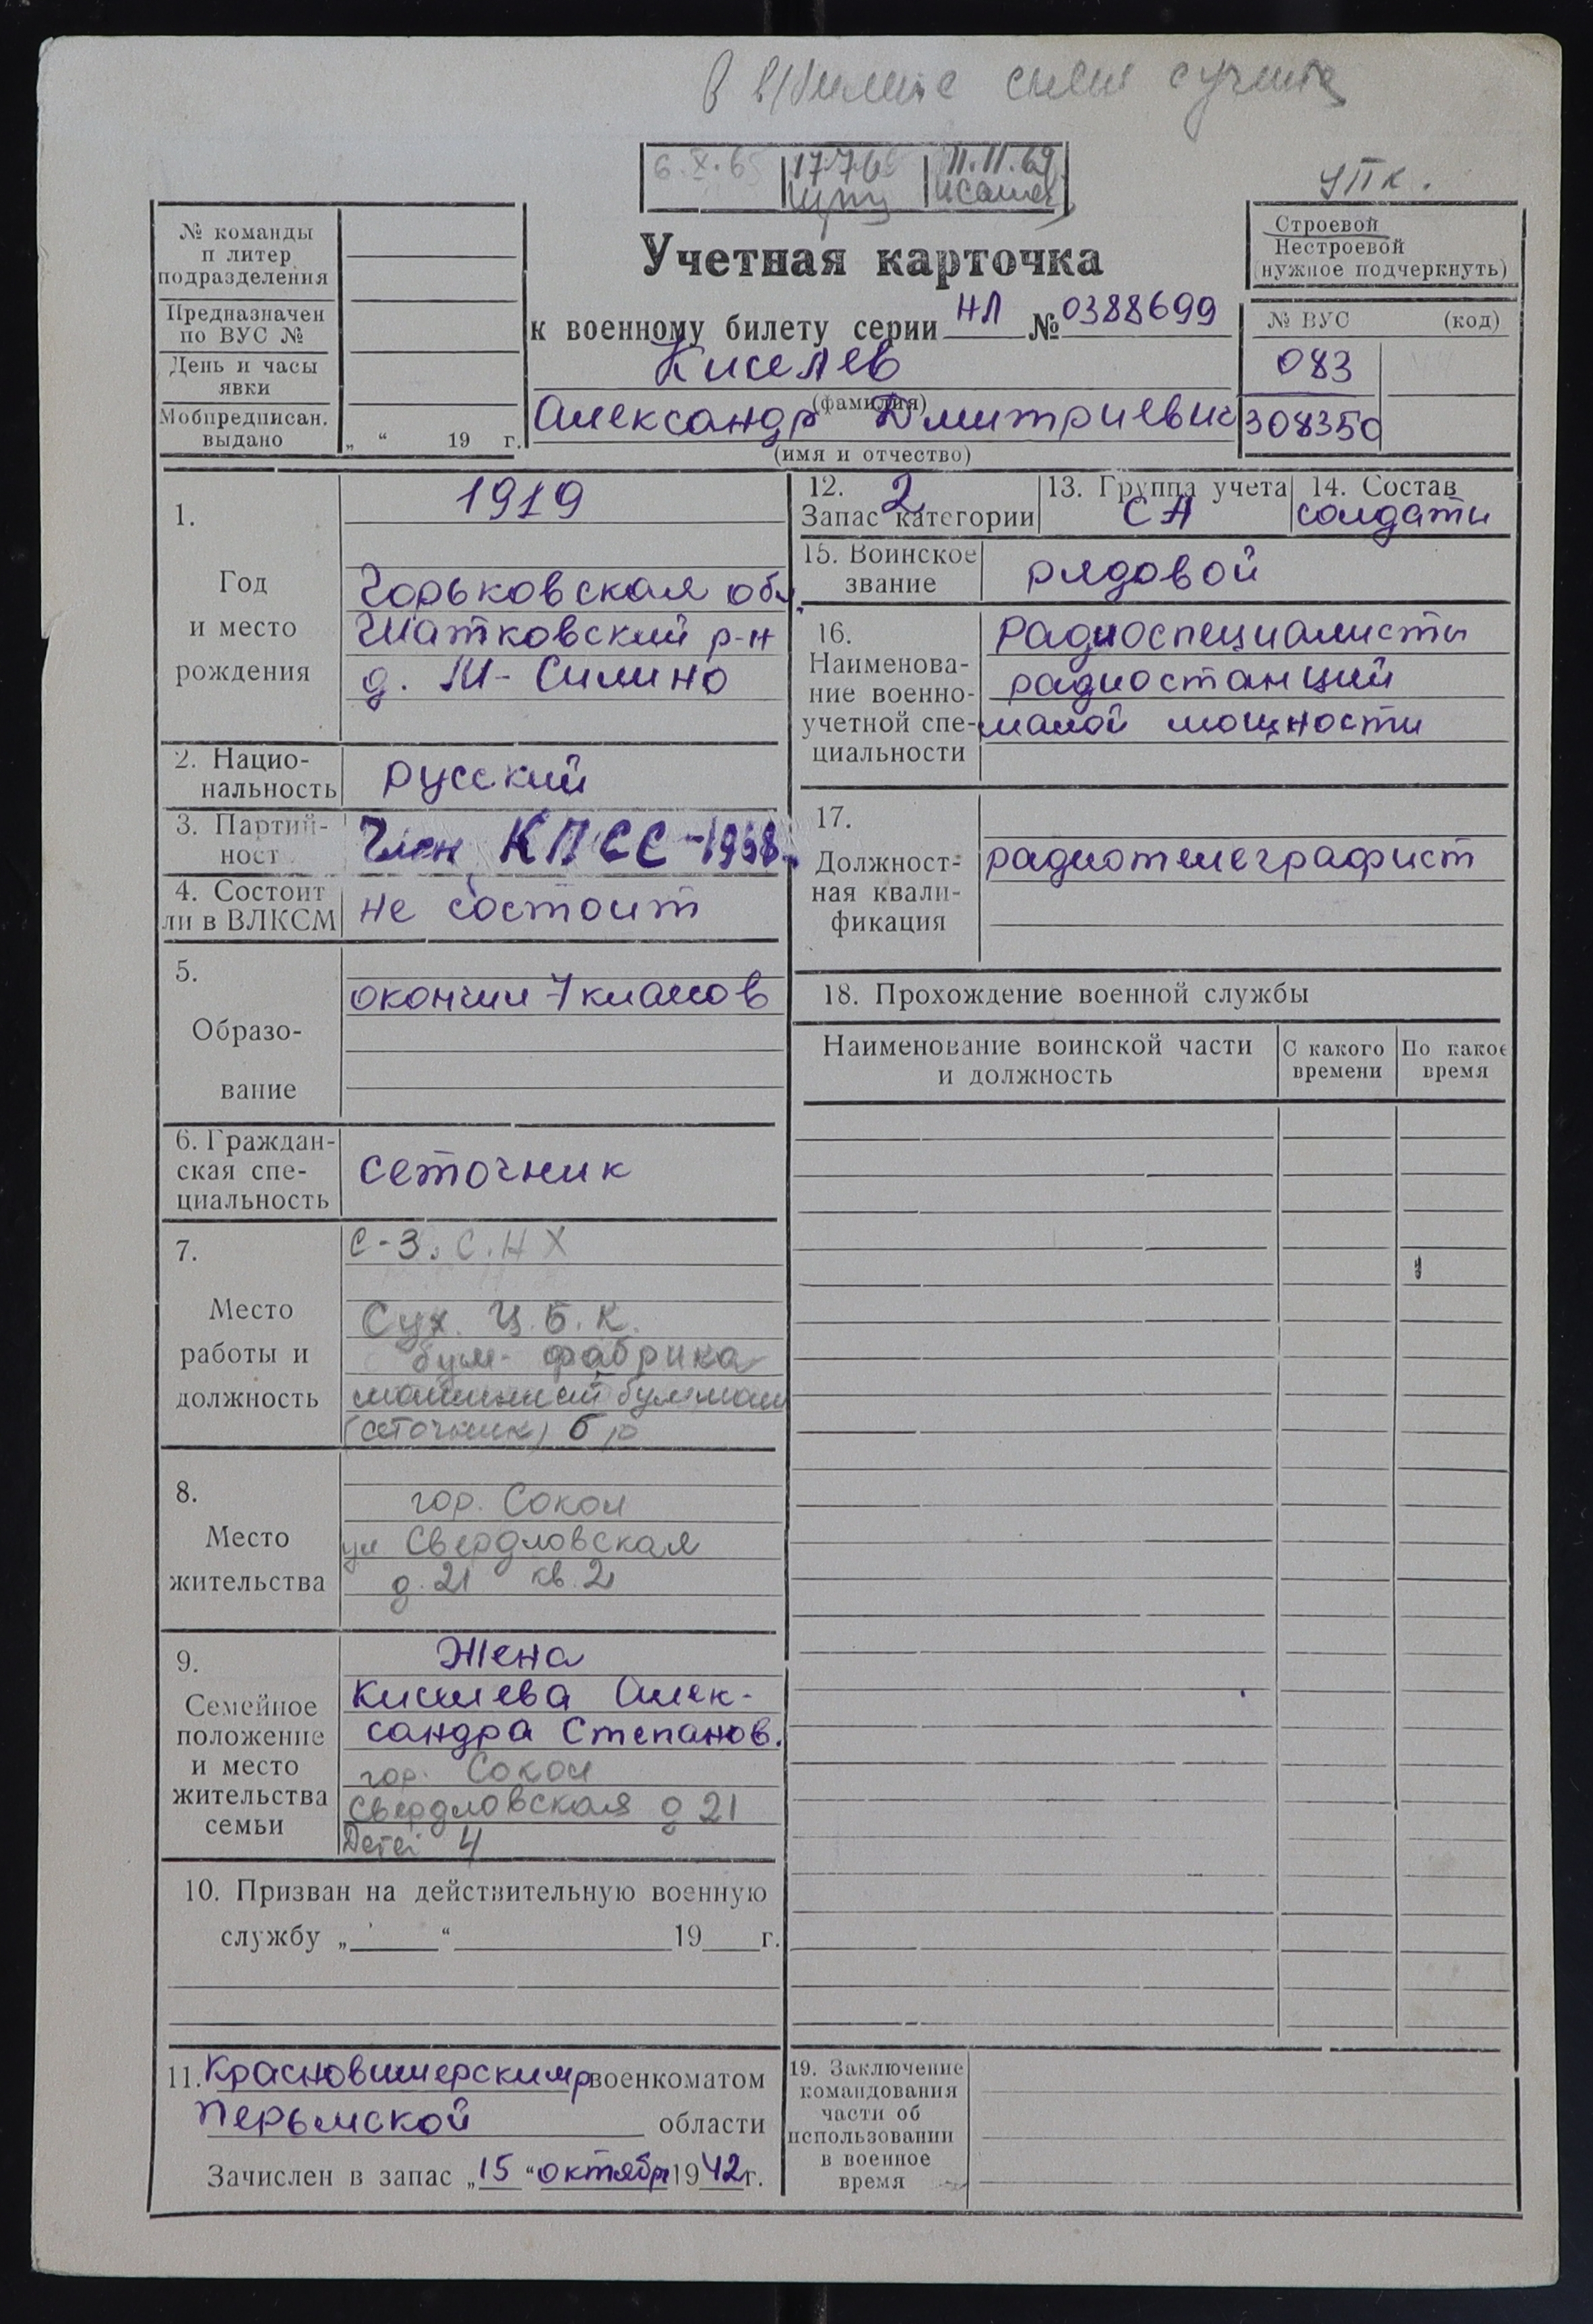 6.X.65
17.7.6
11.11.69
УПК.
№ команды
п литер
подразделения
Предназначен
по ВУС №
День и часы
явки
Мобпредписан.
выдано
„ “ 19 г.
Учетная карточка
к военному билету серии НЛ № 0388699
Киселев
(фамилия)
Александр Дмитриевич
(имя и отчество)
Строевой
Нестроевой
(нужное подчеркнуть)
№ ВУС (код)
083
308350
1.
Год
и место
рождения
1919
Горьковская обл.
Шатковский р-н
д. М-Силино
2. Нацио-
нальность
русский
3. Партий-
ност
Член КПСС-1968
4. Состоит
ли в ВЛКСМ
не состоит
5.
Образо-
вание
окончил 7 классов
6. Граждан-
ская спе-
циальность
сеточник
7.
Место
работы и
должность
С-З. С.Н Х
Сух. Ц.Б.К.
бум. фабрика
машинист бум маш
(сеточник) б р
8.
Место
жительства
гор. Сокол
ул Свердловская
д. 21 кв. 2
9.
Семейное
положение
и место
жительства
семьи
Жена
Киселева Алек-
сандра Степанов.
гор. Сокол
Свердловская д 21
Детей 4
10. Призван на действительную военную
службу „ “ 19 г.
11. Красновишерским р военкоматом
Перьмской области
Зачислен в запас „15 “ октября 1942 г.
12. 2
Запас категории
13. Группа учета
СА
14. Состав
солдаты
15. Воинское
звание
рядовой
16.
Наименова-
ние военно-
учетной спе-
циальности
Радиоспециалисты
радиостанций
малой мощности
17.
Должност-
ная квали-
фикация
радиотелеграфист
18. Прохождение военной службы
Наименование воинской части
и должность
С какого
времени
По какое
время
19. Заключение
командования
части об
использовании
в военное
время